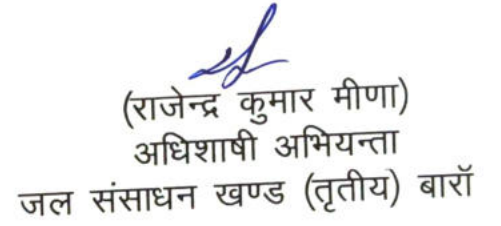 (राजेन्द्र कुमार मीणा)
अधिशाषी अभियन्ता
जल संसाधन खण्ड (तृतीय) बारॉ